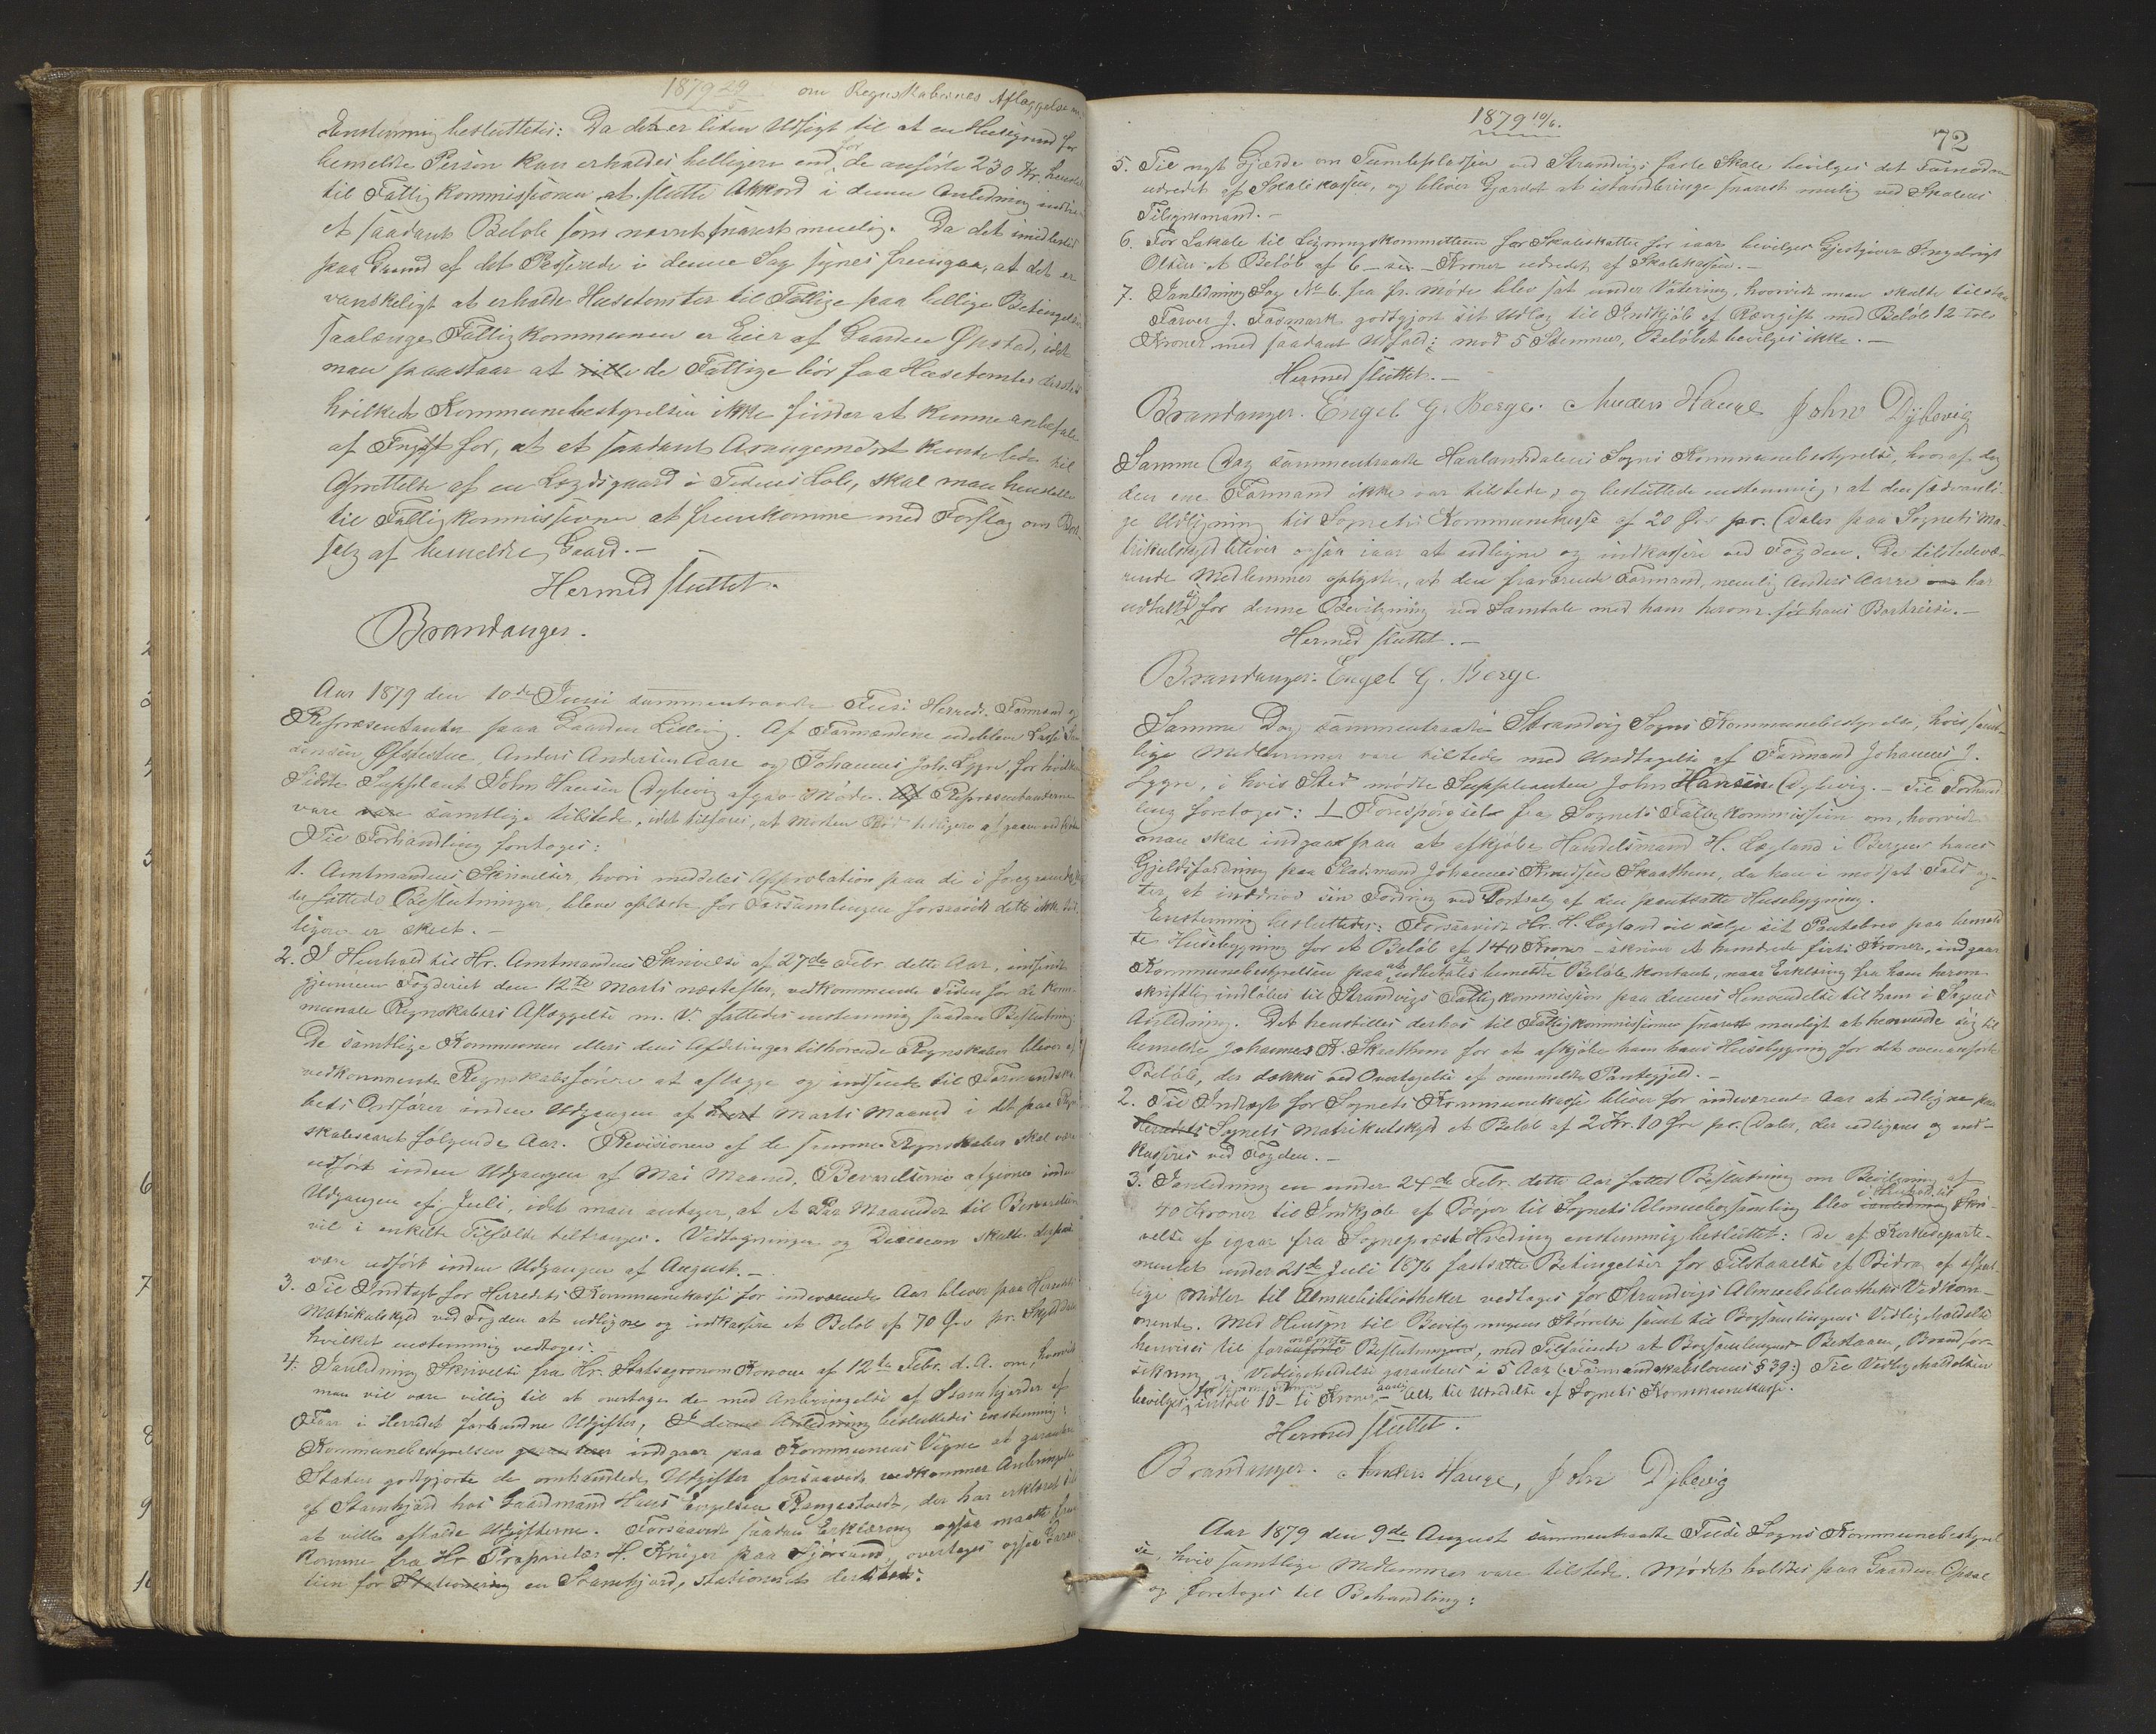 1879 29
om Regnskabernes Aflæggelse
Enstemmig besluttedes: Da det er liden Udsigt til at en Husegrund for
bemeldte Person kan erholdes billigere end for de anførte 230 Kr.
til Fattigkommissionen at slutte Akkord i denne Anledning
et saadant Beløb som nævnt snarest muelig. Da det imidlertid
paa Grund af det Passerede i denne Sag synes fremgaa, at det er
vanskeligt at erholde Husetomter til Fattige paa billige Betingelser
saalænge Fattigkommunen er Eier af Gaarden Opstad, idet
man paastaar at ville de Fattige bør faa Husetomter
hvilket Kommunebestyrelsen ikke finder at kunne anbefale
af Frygt for, at et saadant Arangement kunde lede til
Oprettelse af en Lægdsgaard i Tidens Løb, skal man henstille
til Fattigkommissionen at fremkomme med Forslag om Bort-
salg af bemeldte Gaard.-
Hermed sluttet.
Brandanger.
Aar 1879 den 10de Juni sammentraadte Fuse Herreds Formænd og
Repræsentanter paa Gaarden Lillevig. Af Formændene udebleve Lasse
Ofstestue, Anders Andersen Aare og Johannes Joh. Lygre, for hvilken
Sidste Supplant John Hansen Dybevig afgav Møde. Af Repræsentanterne
vare vare samtlige tilstede, idet tilføies, at Morten tidligere afgaaen ved
Til Forhandling foretoges:
1. Amtmandens Skrivelser, hvori meddeles Approbation paa de i
der fattede Beslutninger, bleve oplæste for Forsamlingen forsaavidt dette ikke
ligere er skeet.-
2. I Henhold til Hr. Amtmandens Skrivelse af 27de Febr. dette Aar, indsendt
gjennem Fogderiet den 12te Marts næstefter, vedkommende Tiden for de Kom-
munale Regnskabers Aflæggelse m. v. fattedes enstemmig saadan Beslutning:
De samtlige Kommunen ellers dens Afdelinger tilhørende Regnskaber bliver af
vedkommende Regnskabsfører at aflægge og indsende til Formandska-
bets Ordfører inden Udgangen af Marts Maaned i det paa Regn-
skabsaaret følgende Aar. Revisionen af de samme Regnskaber skal være
udført inden Udgangen af Mai Maaned, Besvarelserne afgives inden
Udgangen af Juli, idet man antager, at et Par Maaneder til Besvarelsen
vil i enkelte Tilfælde tiltrænges. Vedtagninger og Decision skulde
være udført inden Udgangen af August.-
3. Til Indtægt for Herredets Kommunekasse for indeværende Aar bliver paa Herredets
Matrikulskyld ved Fogden at udligne og indkassere et Beløb af 70 Øre pr. Skylddaler
hvilket enstemmig vedtoges.-
4. I Anledning Skrivelse fra Hr. Statsagronom af 12te Febr. d. A. om, hvorvidt
man vil være villig til at overtage de med Anbringelse af Stamhjorder af
Faar i Herredet forbundne Udgifter, I denne Anledning besluttedes enstemmig:
Kommunebestyrelsen indgaar paa Kommunens Vegne at garantere
Staten godtgjorte de omhandlede Udgifter forsaavidt vedkommer Anbringelse
af Stamhjord hos Gaardmand Hans Engelsen Rangestvedt, der har erklæret
at ville afholde Udgifterne. Forsaavidt saadan Erklæring ogsaa maatte frem-
komme fra Hr. Proprietær H. Krüger paa overtages ogsaa Garan-
tien for Stationering en Stamhjord, stationeret dersteds.
1879 10/6.
72
5. Til nyt Gjærde om Tumlepladsen ved Strandvigs faste Skole bevilges det Fornødne
udredet af Skolekassen, og bliver Gjærdet at istandbringe snarest mulig ved Skolens
Tilsynsmand.-
6. For Lokale til Ligningskommitteen for Skoleskatten for iaar bevilges Gjestgiver Ingebrigt
Olsen et Beløb af 6 - sex - Kroner udredet af Skolekassen.-
7. I Anledning Sag No 6. fra fr. Møde blev sat under Votering, hvorvidt man skulde tilstaa
Farver J. Fadmark godtgjort sit Udlæg til Indkjøb af Rævegift med Beløb 12 tolv
Kroner med saadant Udfald: mod 5 Stemmer, Beløbet bevilges ikke.-
Hermed sluttet.-
Brandanger. Engel G. Berge. Anders Hauge John Dybevig
Samme Dag sammentraadte Haalandsdalens Sogns Kommunebestyrelse, hvoraf dog
den ene Formand ikke var tilstede, og besluttede enstemmig, at den sædvanli-
ge Udligning til Sognets Kommunekasse af 20 Øre pr. Daler paa Sognets Ma-
trikulskyld bliver ogsaa iaar at udligne og indkassere ved Fogden. De tilstedevæ-
rende Medlemmer oplyste, at den fraværende Formand, nemlig Anders Aarre var har
udtalt sig for denne Bevilgning ved Samtale med ham herom før hans Bortreise.-
Hermed sluttet.-
Brandanger. Engel G. Berge
Samme Dag sammentraadte Strandvig Sogns Kommunebestyrelse, hvis samt-
lige Medlemmer vare tilstede med Undtagelse af Formand Johannes J.
Lygre, i hvis Sted mødte Suppleanten John Hansen Dybevig.- Til Forhand-
ling foretoges: 1 Forespørgsel fra Sognets Fattigkommission om, hvorvidt
man skal indgaa paa at afkjøbe Handelsmand H. Lægland i Bergen hans
Gjeldsfordring paa Pladsmand Johannes Knudsen Skaathun, da han i modsat Fald ag-
ter at inddrive sin Fordring ved Bortsalg af den pantsatte Husebygning.
Enstemmig besluttedes: Forsaavidt Hr. H. Lægland vil sælge sit Pantebrev paa bemeld-
te Husebygning for et Beløb af 140 Kroner - skriver et hundrede firti Kroner, indgaar
Kommunebestyrelsen paa at udbetale bemeldte Beløb kontant, naar Erklæring fra ham herom
skriftlig indløber til Strandvigs Fattigkommission paa dennes Henvendelse til ham i Sagens
Anledning. Det henstilles derhos til Fattigkommissionen snarest mueligt at henvende sig til
bemeldte Johannes K. Skaathun for at afkjøbe ham hans Husebygning for det ovenanførte
Beløb, der dækkes ved Overtagelse af ovenmeldte Pantegjæld.-
2. Til Indtægt for Sognets Kommunekasse bliver for indeværende Aar at udligne paa
Herredets Sognets Matrikulskyld et Beløb af 2 Kr. 10 Øre pr. Daler, der udlignes og ind-
kasseres ved Fogden.-
3. I Anledning en under 24de Febr. dette Aar fattet Beslutning om Bevilgning af
40 Kroner til Indkjøb af Bøger til Sognets Almuebogsamling blev i Henhold til Skri-
velse af igaar fra Sogneprest Hvoding enstemmig besluttet: De af Kirkedeparte-
mentet under 21de Juli 1876 fastsatte Betingelser for Tilstaaelse af Bidrag af offent-
lige Midler til Almuebibliotheker vedtages for Strandvigs Almuebibliotheks Vedkom-
mende. Med Hensyn til Bevilgningens Størrelse samt til Bogsamlingens Vedligeholdelse
henvises til nævnte Beslutning, med Tilføiende at Bogsamlingens Bestaaen, Brandfor-
sikring og Vedligeholdelse garanteres i 5 Aar (Formandskabslovens § 39:) Til Vedligeholdelsen
bevilges indtil 10 - ti Kroner aarlig Alt til Udredelse af Sognets Kommunekasse.
Hermed sluttet.
Brandanger. Anders Hauge, John Dybevig
Aar 1879 den 9de August sammentraadte Fuse Sogns Kommunebestyrel-
se, hvis samtlige Medlemmer vare tilstede. Mødet holdtes paa Gaarden Opsal
og foretoges til Behandling: